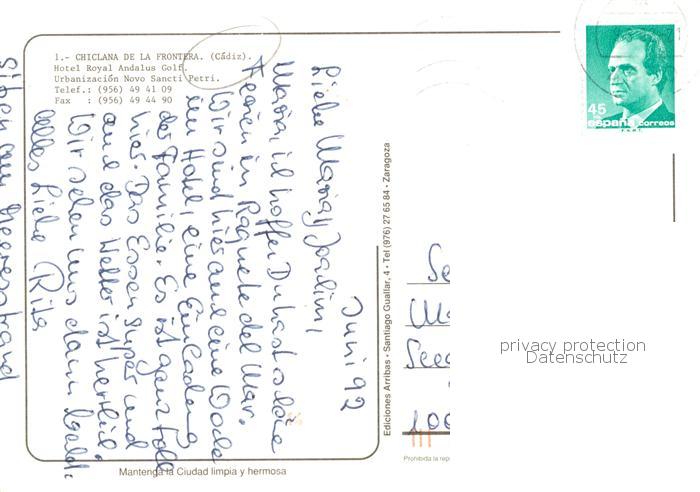 1.- CHICLANA DE LA FRONTERA. (Cádiz).
Hotel Royal Andalus Golf.
Urbanización Novo Sancti Petri.
Telef.: (956) 49 41 09
Fax : (956) 49 44 90
45
españa correos
Juni 92
Liebe Maria, Joachim,
Maria ich hoffe Du hast schöne
Ferien in Roquetas del Mar.
Wir sind hier auch eine Woche
im Hotel, eine Einladung
der Familie. Es ist ganz toll
hier. Das Essen super und
auch das Wetter ist herrlich.
Wir sehen uns dann bald.
alles Liebe Rita
Ediciones Arribas - Santiago Guallar, 4 - Tel (976) 27 65 84 - Zaragoza
Se
See
100
privacy protection
Datenschutz
Prohibida la rep
Mantenga la Ciudad limpia y hermosa